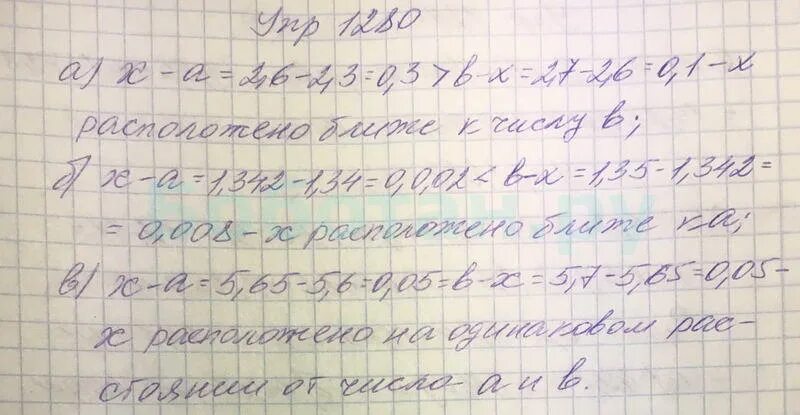 Упр 1280
а) х - а = 2,6 - 2,3 = 0,3 > в - х = 2,7 - 2,6 = 0,1 - х
расположено ближе к числу в;
б) х - а = 1,342 - 1,34 = 0,002 < в - х = 1,35 - 1,342 =
= 0,008 - х расположено ближе к а;
в) х - а = 5,65 - 5,6 = 0,05 = в - х = 5,7 - 5,65 = 0,05 -
х расположено на одинаковом рас-
стоянии от числа а и в.